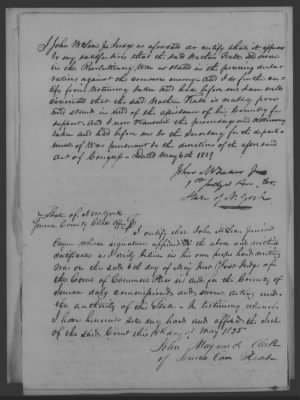 I John McLean Jr Judge as aforesaid do certify that it appears
to my satisfaction that the said Nathan Teall did serve
in the Revolutionary War as stated in the preceding decla
rations against the common enemy and I do further cer
tify from testimony taken and had before me I am well
convinced that the said Nathan Teall is really poor
and stands in need of the assistance of his Country for
support And I now transmit the proceedings and testimony
taken and had before me to the Secretary for the depart-
ment of War pursuant to the directions of the aforesaid
Act of Congress - Dated May 6th 1819
John McLean Jr
Judge Sen. Co.
State of N. York
State of New York
Seneca County Clerks Office
I certify that John McLean Junior
Esqr. whose signature appears to the above and
certificates as I verily believe in his own proper hand writing
was on the said 6th day of May Inst. first Judge of
the Court of Common Pleas in and for the County of
Seneca duly commissioned and sworn acting under
the authority of this State - In testimony whereof
I have hereunto set my hand and affixed the Seal
of the said Court this day of May 1825
John Maynard Clerk
of Seneca Com. Pleas